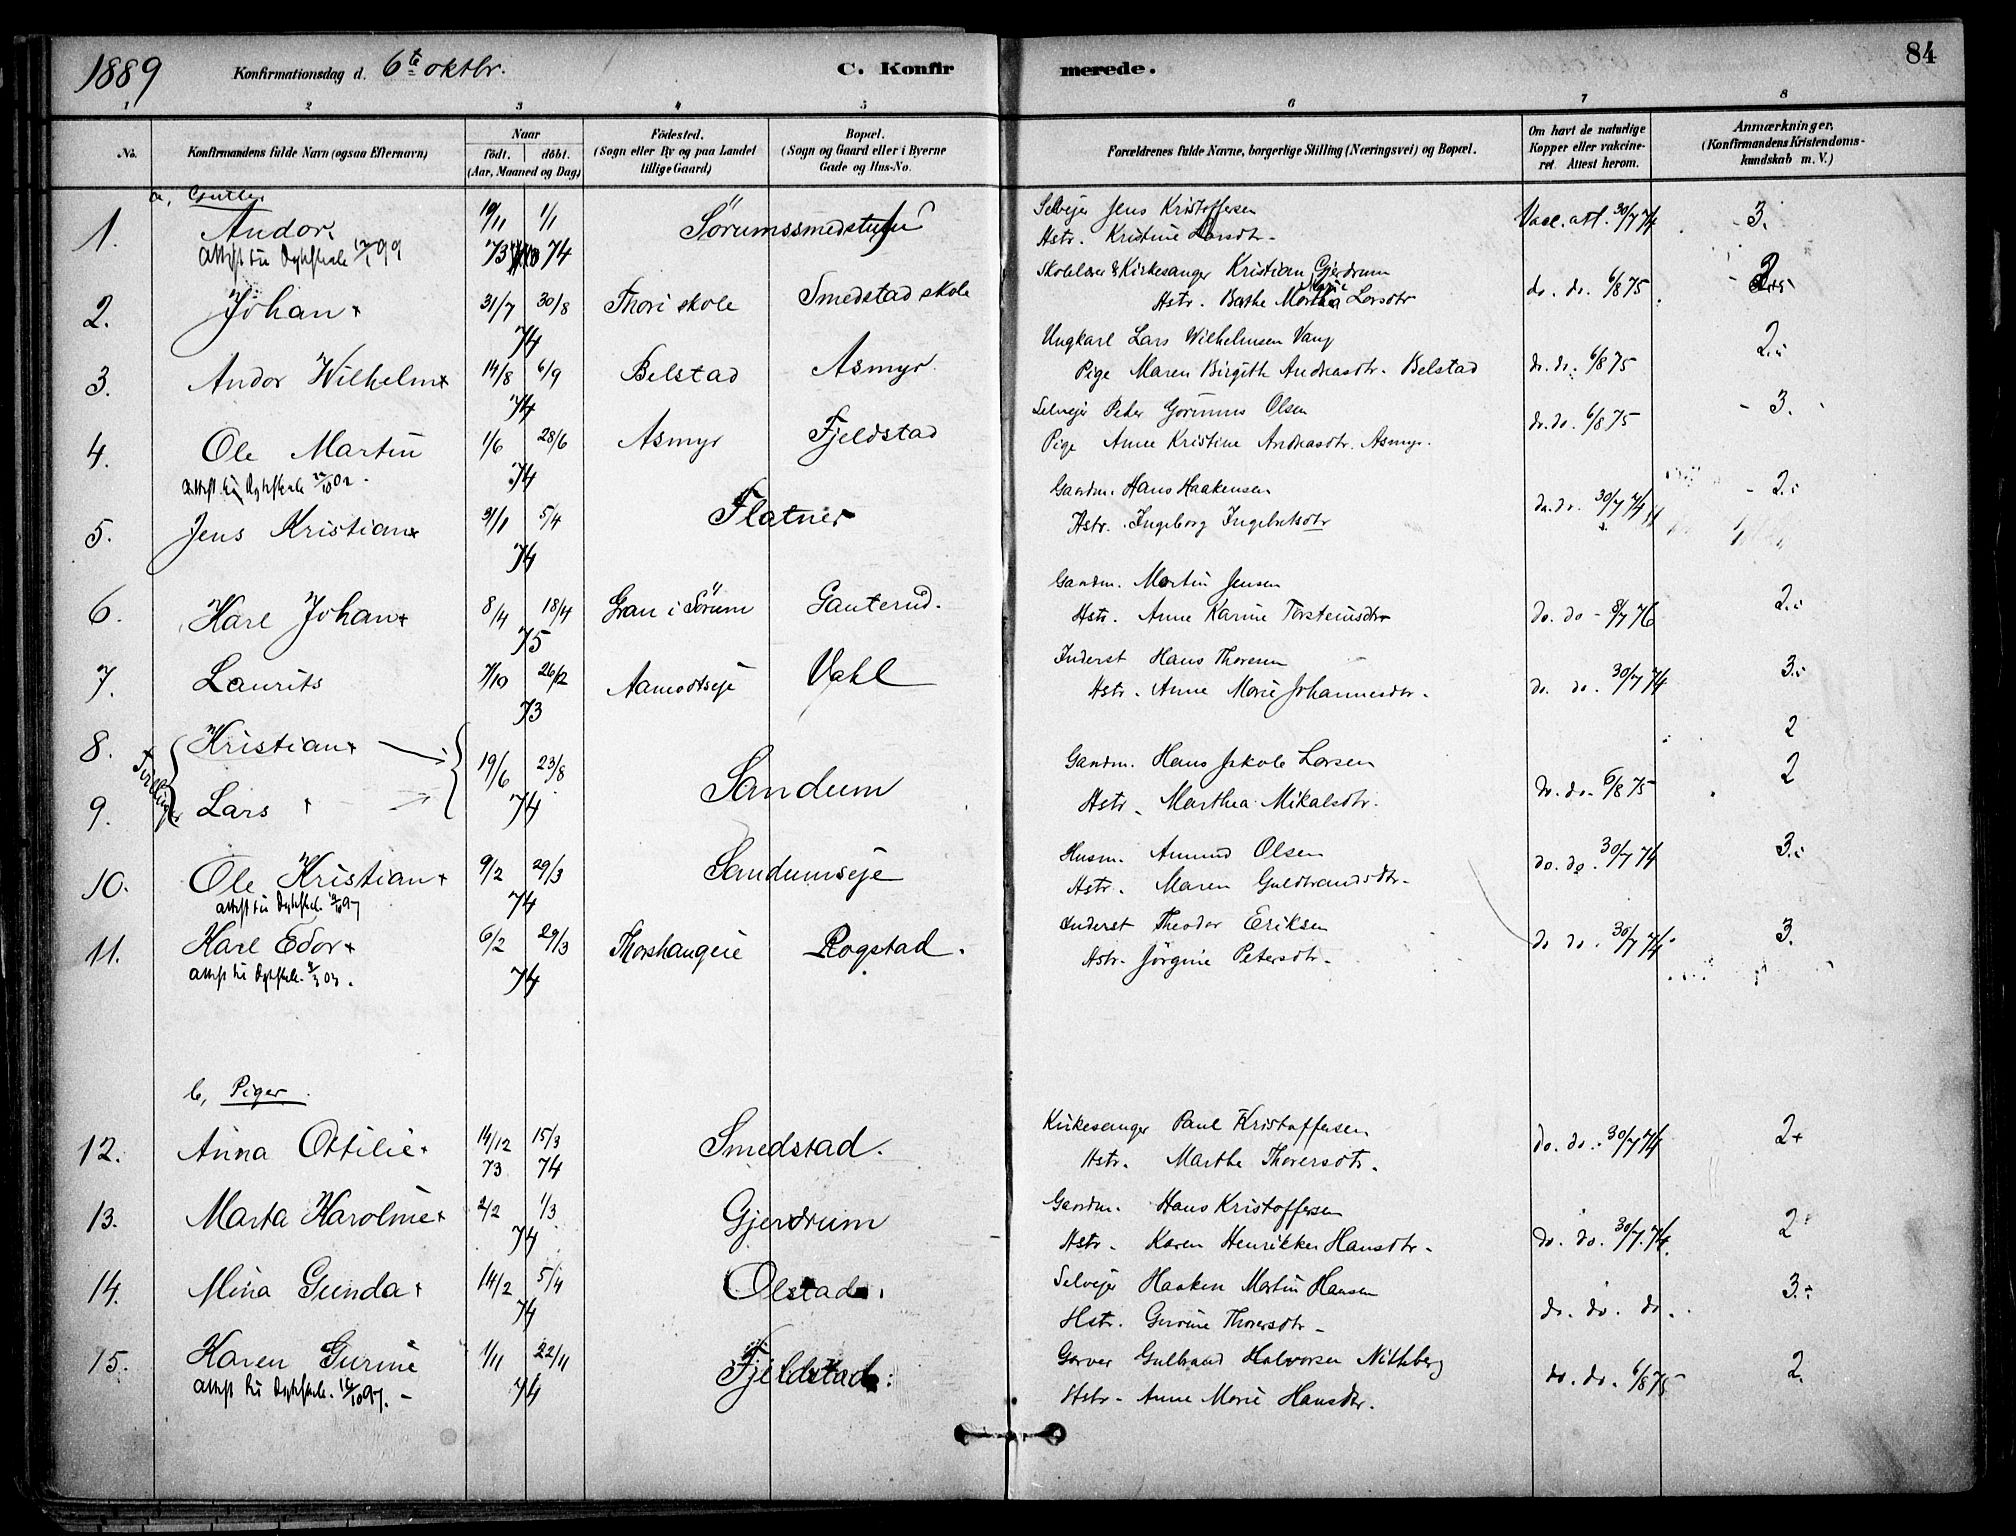 1889 Konfirmationsdag d. 6te oktbr. C. Konfirmerede. 84
1 2 3 4 5 6 7 8
No. Konfirmandens fulde Navn (ogsaa Efternavn) Naar født. døbt. (Aar, Maaned og Dag) Födested. (Sogn eller By og paa Landet tillige Gaard) Bopæl. (Sogn og Gaard eller i Byerne Gade og Hus-No. Forældrenes fulde Navne, borgerlige Stilling (Næringsvei) og Bopæl. Om havt de naturlige Kopper eller vakcineret. Attest herom. Anmærkninger. (Konfirmandens Kristendomskundskab m. V.)
a, Gutter
1. Andor. 19/11 73 1/1 74 Sörumssmedstufu Selvejer Jens Kristoffersen Vacc. att. 30/7 74 3.
Hstr. Kristine Larsdtr.
2. Johan 31/7 30/8 74 Thori skole Smedstad skole Skolelærer & Kirkesanger Kristian Gjerdrum do. do. 6/8 75
Hstr. Berthe Marie Larsdtr
3. Andor Wilhelm 14/8 6/9 74 Belstad Asmyr Ungkarl Lars Wilhelmsen Vang do. do. 6/8 75 2.
Pige Maren Birgith Andreasdtr. Belstad
4. Ole Martin 1/6 28/6 74 Asmyr Fjeldstad Selvejer Peter Olsen do. do. 6/8 75 3.
Pige Anne Kristine Andreasdtr. Asmyr.
5. Jens Kristian 31/1 5/4 74 Flatner Gaardm. Hans Haakensen do. do. 30/7 74 2.
Hstr. Ingeborg Ingebretsdtr
6. Karl Johan 8/4 18/4 75 Gran i Sörum Ganterud. Gaardm. Martin Jensen do. do - 8/7 76 2.
Hstr. Anne Karine Torsteinsdtr
7. Laurits 7/10 26/12 73 Aamodtseje Vahl Inderst Hans Thoresen do. do. 30/7 74 3.
Hstr. Anne Marie Johannesdtr.
Tvillinger
8. Kristian 2
9. Lars 19/6 23/8 74 Sandum Gaardm. Hans Jakob Larsen do. do. 6/8 75 2
Hstr. Marthea Mikalsdtr.
10. Ole Kristian 9/2 29/3 74 Sandumseje Husm. Amund Olsen do. do. 30/7 74 3.
Hstr. Maren Guldbrandsdtr.
11. Karl Edor 6/2 29/3 74 Rogstad. Inderst Theodor Eriksen do do. 30/7 74. 3.
Hstr. Jörgine Petersdtr.
b, Piger
12. Anna Ottilie 14/12 73 15/3 74 Smedstad. Kirkesanger Paul Kristoffersen do. do. 30/7 74 2
Hstr. Marthe Thoresdtr.
13. Marta Karoline 2/2 1/3 74 Gjerdrum Gaardm. Hans Kristoffersen do. do. 30/7. 74. 2
Hstr. Karen Henrikke Hansdtr.
14. Mina Gunda 14/2 5/4 74 Olstad. Selvejer Haaken Martin Hansen do. do. do. 3.
Hstr. Thoresdtr.
15. Karen Gurine 1/11 22/11 74 Fjeldstad. Garver Gulbrand Halvorsen Nitteberg do. do. 6/8 75 2.
Hstr. Anne Marie Hansdtr.